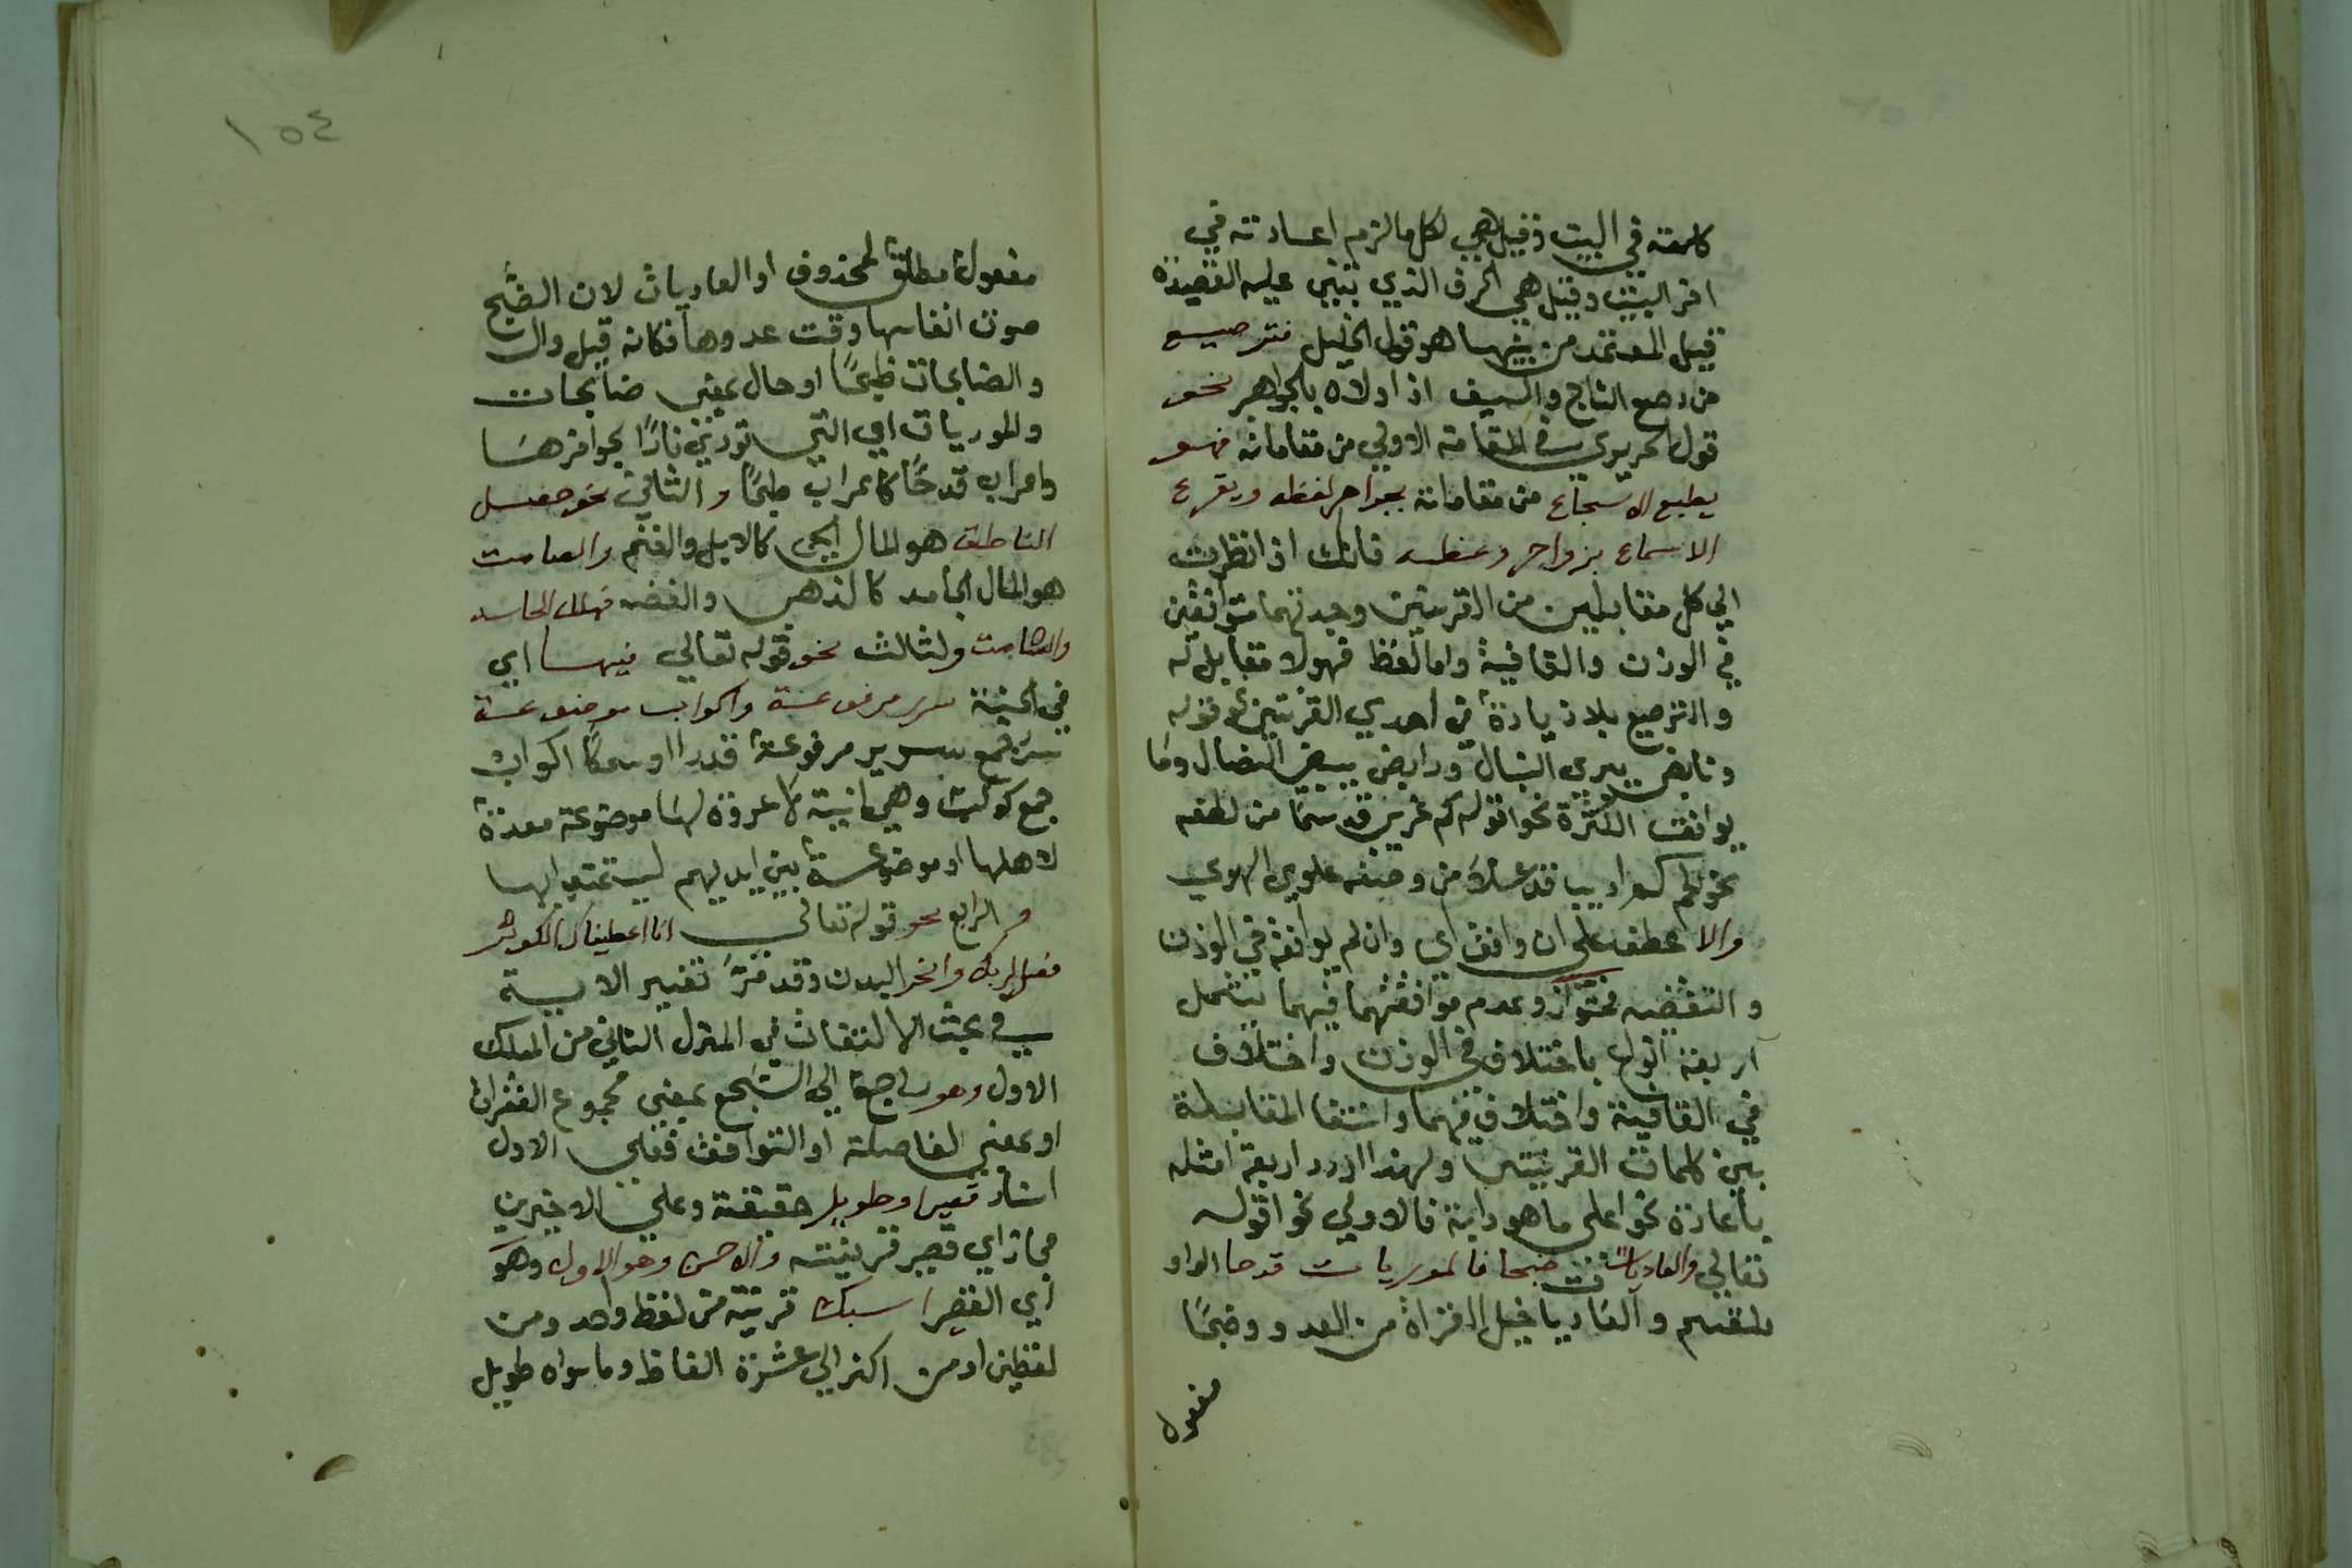 كلمته في البيت وقيل هي لكل ما لزم اعادته في
اخر البيت وقيل هي الحرف الذي تبتني عليه القصيده
قيل المعتمد من بينها هو قول الخليل فترصيع
من رصع التاج والسيف اذا ولاه بالجواهر نحو
قول الحريري في المقامة الاولي من مقاماته فهو
يطبع الاسجاع من مقاماته بجواهر لفظه ويقرع
الاسماع بزواجر وعظه فانك اذا نظرت
الي كل متقابلين من القرينتين وجدتهما متوافقين
في الوزن والقافية واما لفظ فهو لا مقابل له
والترصيع بلا زيادة في احدي القرينتين كقوله
ونابض يبري النبال ورابض يبيض النصال وما
يوافق الكثرة نحو قوله كم غريب قد سما من لطفه
نحو لكم اديبا قد علا من وصفه علوي الهوي
والا عطف علي ان وافق اي وان لم يوافق في الوزن
والتقفيه فمتواز وعدم موافقتهما فيهما يشمل
اربعة انواع باختلاف في الوزن واختلاف
في القافية واختلاف فيهما وانتفا المقابلة
بين كلمات القرينتين ولهذا اورد اربعة امثله
باعادة نحو اعلي ما هو دابة فالاولي نحو قوله
تعالي والعاديات ضبحا فالموريات قدحا الواو
للقسم والعاديا خيل الغزاة من العدو وضبحًا
مفعولا
١٥٤
مفعولا مطلق لمحذوف او العاديات لان الضبح
صوت انفاسها وقت عدوها فكانه قيل وال
والضابحات ضبحًا او حال بمعني ضابحات
والموريات اي التي تورين نارًا بحوافرها
واعراب قدحًا كاعراب ضبحًا والثاني نحو حصل
الناطق هو المال الحي كالابل والغنم والصامت
هو المال الجامد كالذهب والفضه فهلك الحاسد
والشامت ولثالث نحو قوله تعالي فيها اي
في الجنة سرر مرفوعة واكواب موضوعة
سرر جمع سرير مرفوعة قدرا او سمكًا اكواب
جمع كوب وهي انية لا عروة لها موضوعة معدة
لاهلها او موضوعة بين ايديهم ليستمتعوا بها
والرابع نحو قوله تعالي انا اعطيناك الكوثر
فصل لربك وانحر البدن وقد مر تفسير الاية
في بحث الالتفات في المنزل الثاني من المسلك
الاول وهو راجع الي السجع بمعني مجموع الفقرات
او بمعني الفاصلة او التوافق فعلي الاول
اسناد قصير او طويل حقيقة وعلي الاخيرين
مجاز اي قصير قرينته والاحسن وهو الاول وهو
اي القصير اسبك قرينة من لفظ واحد ومن
لفظين او من اكثر الي عشرة الفاظ وما سواه طويل